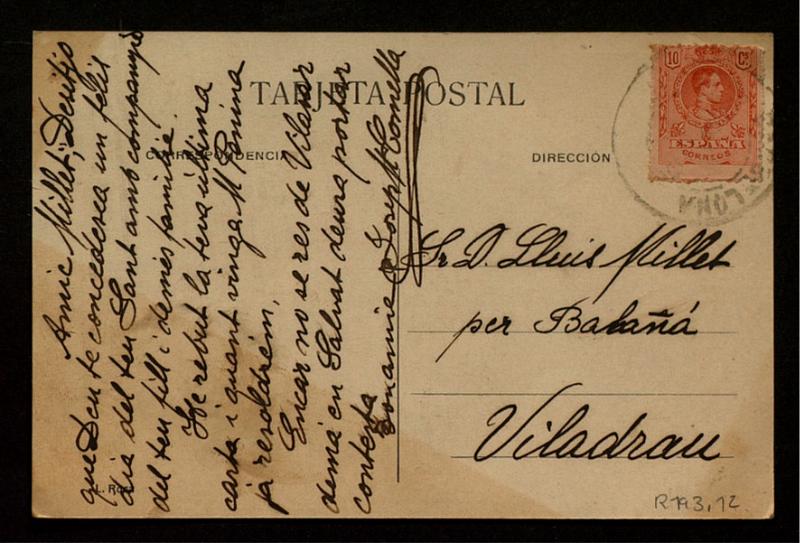 TARJETA POSTAL
CORRESPONDENCIA
DIRECCIÓN
10 Cs
ESPAÑA
CORREOS
Amic Millet; Desitjo
que Deu te concedesca un felis
dia del teu Sant amb companyia
del teu fill i demes familia.
He rebut la teva ultima
carta i quant vinga M Panina
ja resoldrém.
Encar no se res de Vilanar
demá en Salvat deura portar
contesta
Ton amic Joseph Comella
Sr. D. Lluis Millet
per Balañá
Viladrau
L. Roi
R 193, 12